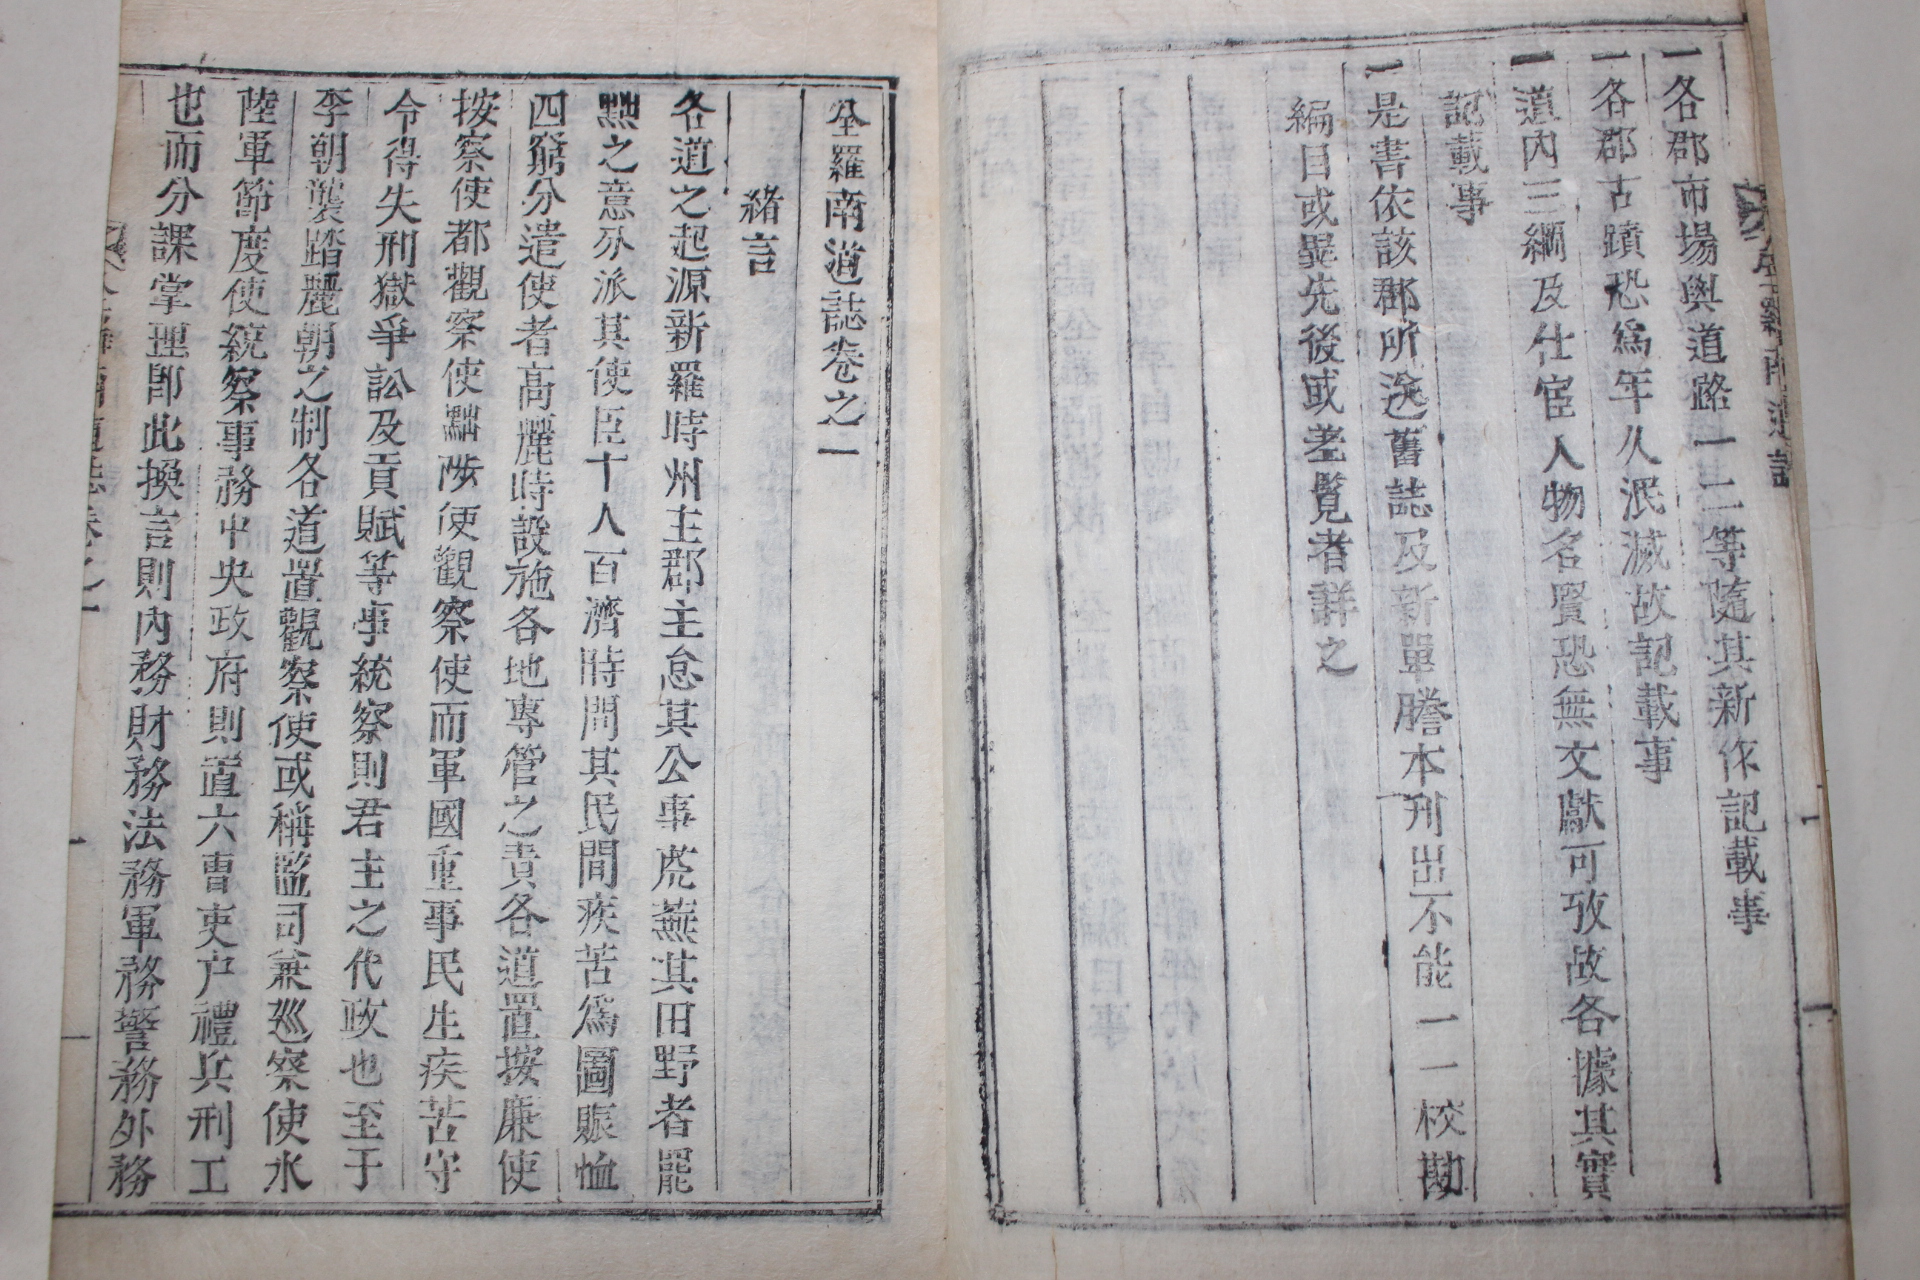 一各郡市場與道路一二等隨其新作記載事
一各郡古蹟恐爲年久泯滅故記載事
一道內三綱及仕宦人物名賢恐無文獻可攷故各據其實
記載事
一是書依該郡所送舊誌及新單謄本刊出不能一一校勘
編目或異先後或差覽者詳之
全羅南道誌卷之一
緖言
各道之起源新羅時州主郡主怠其公事虎蕪其田野者罷
黜之意分派其使臣十人百濟時問其民間疾苦爲圖賑恤
四窮分遣使者高麗時設施各地專管之責各道置按廉使
按察使都觀察使黜陟使觀察使而軍國重事民生疾苦守
令得失刑獄爭訟及貢賦等事統察則君主之代政也至于
李朝襲踏麗朝之制各道置觀察使或稱監司兼巡察使水
陸軍節度使統察事務中央政府則置六曹吏戶禮兵刑工
也而分課掌理卽此換言則內務財務法務軍務警務外務